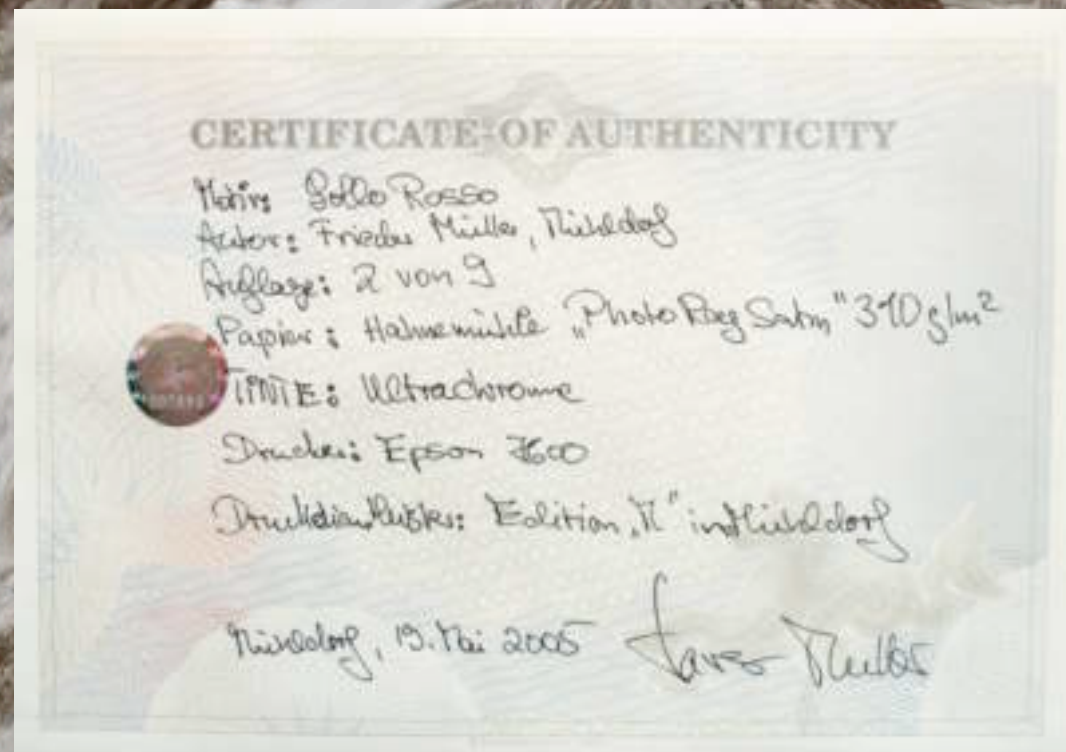 CERTIFICATE OF AUTHENTICITY
Motiv: Gollo Rosso
Autor: Frieder Müller, Mühldorf
Auflage: 2 von 9
Papier: Hahnemühle „Photo Rag Satin" 310 g/m²
TINTE: Ultrachrome
Drucker: Epson 7600
Druckdienstleister: Edition „M" in Mühldorf
Mühldorf, 19. Mai 2005 Müller